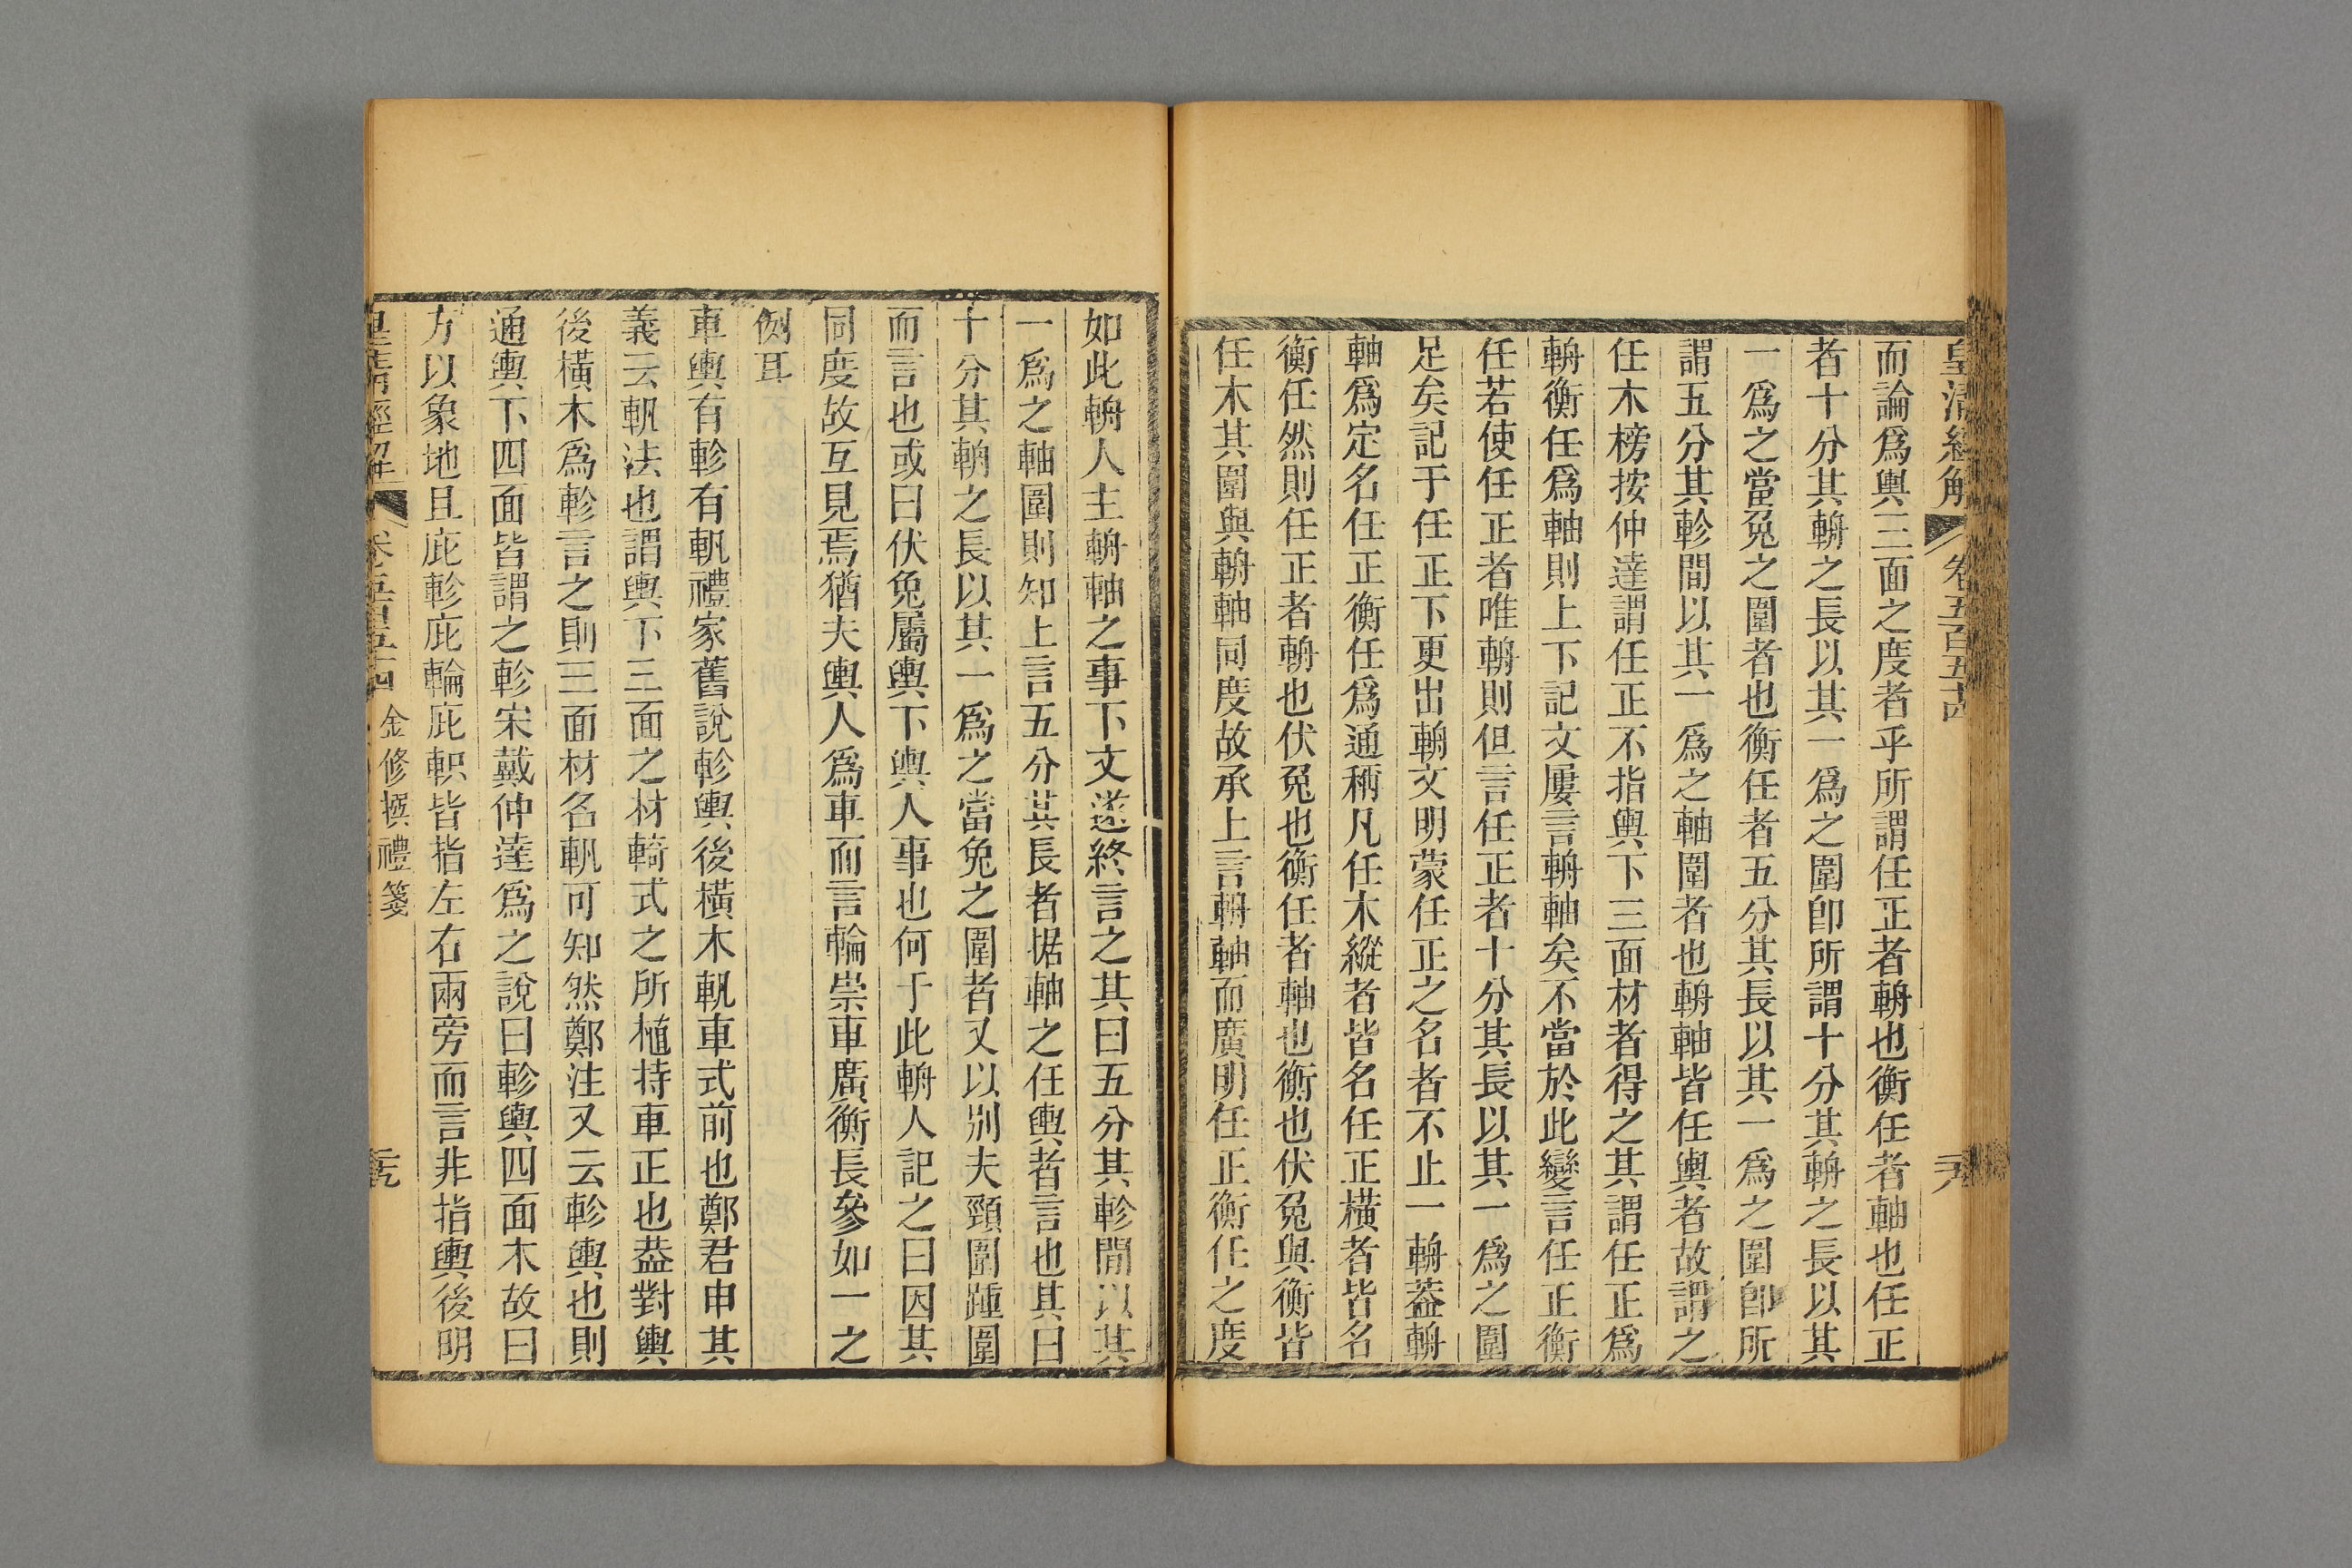 皇清經解 卷五百五十四 六
而論爲輿三面之度者乎所謂任正者輈也衡任者軸也任正
者十分其輈之長以其一爲之圍卽所謂十分其輈之長以其
一爲之當兔之圍者也衡任者五分其長以其一爲之圍卽所
謂五分其軫間以其一爲之軸圍者也輈軸皆任輿者故謂之
任木榜按仲達謂任正不指輿下三面材者得之其謂任正爲
輈衡任爲軸則上下記文屢言輈軸矣不當於此變言任正衡
任若使任正者唯輈則但言任正者十分其長以其一爲之圍
足矣記于任正下更出輈文明蒙任正之名者不止一輈葢輈
軸爲定名任正衡任爲通稱凡任木縱者皆名任正橫者皆名
衡任然則任正者輈也伏兔也衡任者軸也衡也伏兔與衡皆
任木其圍與輈軸同度故承上言輈軸而廣明任正衡任之度
如此輈人主輈軸之事下文遂終言之其曰五分其軫間以其
一爲之軸圍則知上言五分其長者据軸之任輿者言也其曰
十分其輈之長以其一爲之當兔之圍者又以別夫頸圍踵圍
而言也或曰伏兔屬輿下輿人事也何于此輈人記之曰因其
同度故互見焉猶夫輿人爲車而言輪崇車廣衡長參如一之
例耳
車輿有軫有軓禮家舊說軫輿後橫木軓車式前也鄭君申其
義云軓法也謂輿下三面之材輢式之所植持車正也葢對輿
後橫木爲軫言之則三面材名軓可知然鄭注又云軫輿也則
通輿下四面皆謂之軫宋戴仲達爲之說曰軫輿四面木故曰
方以象地且庇軫庇輪庇軹皆指左右兩旁而言非指輿後明
皇清經解 卷五百五十四 金修撰禮箋